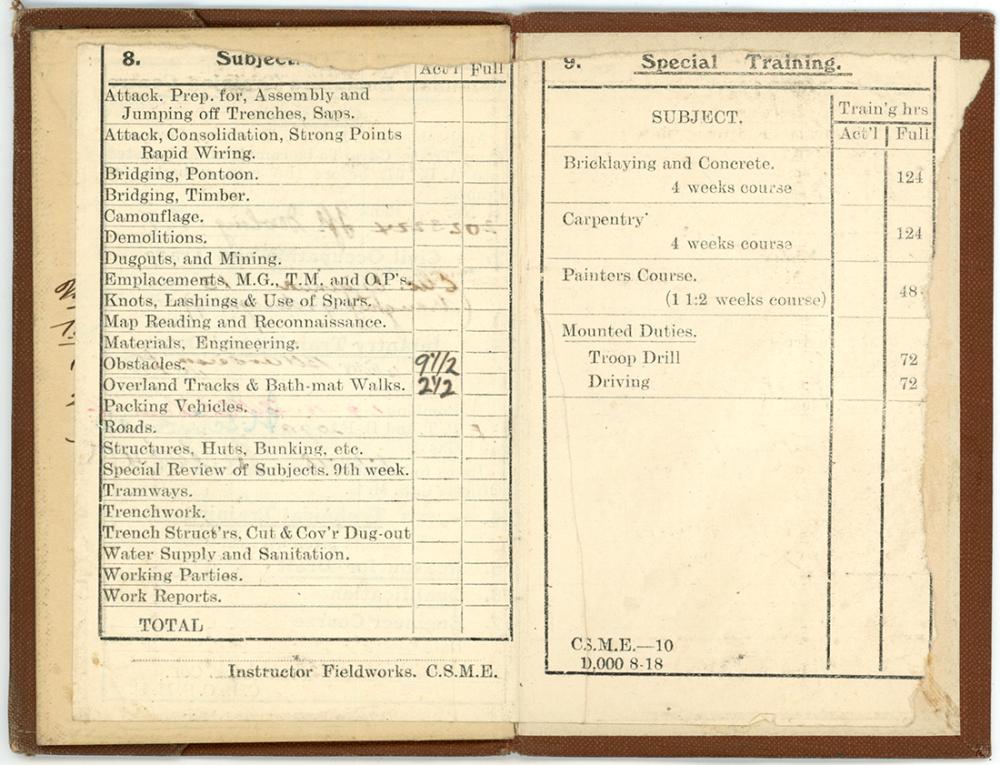 8. Subject.
Act'l Full
Attack. Prep. for, Assembly and
Jumping off Trenches, Saps.
Attack, Consolidation, Strong Points
Rapid Wiring.
Bridging, Pontoon.
Bridging, Timber.
Camouflage.
Demolitions.
Dugouts, and Mining.
Emplacements, M.G., T.M. and O.P's.
Knots, Lashings & Use of Spars.
Map Reading and Reconnaissance.
Materials, Engineering.
Obstacles. 9 1/2
Overland Tracks & Bath-mat Walks. 2 1/2
Packing Vehicles.
Roads.
Structures, Huts, Bunking, etc.
Special Review of Subjects. 9th week.
Tramways.
Trenchwork.
Trench Struct'rs, Cut & Cov'r Dug-out
Water Supply and Sanitation.
Working Parties.
Work Reports.
TOTAL
Instructor Fieldworks. C.S.M.E.
9. Special Training.
SUBJECT. Train'g hrs
Act'l Full
Bricklaying and Concrete.
4 weeks course 124
Carpentry
4 weeks course 124
Painters Course.
(1 1:2 weeks course) 48
Mounted Duties.
Troop Drill 72
Driving 72
C.S.M.E.—10
D,000 8-18